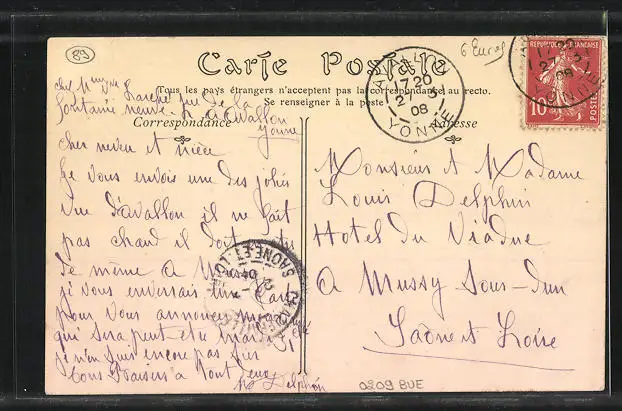 89
6 Euros
Carte Postale
Tous les pays étrangers n'acceptent pas la correspondance au recto.
Se renseigner à la poste
Correspondance
Adresse
REPUBLIQUE FRANÇAISE
10
POSTES
17 20
27 3
08
YONNE
chez Mme
rue de la
fontaine neuve à avallon
yonne
cher neveu et nièce
Je vous envois une des jolies
Vue d'avallon il ne fait
pas chaud il doit
de même a
je vous enverrais une Carte
pour vous annoncer
qui sera peut etre
je n'en suis encore pas sur
bons Baisers a
Delphin
SAONE-ET-LOIRE
Monsieur et Madame
Louis Delphin
Hotel du Viaduc
A Mussy Sous-Dun
Saône et Loire
0209 BUE